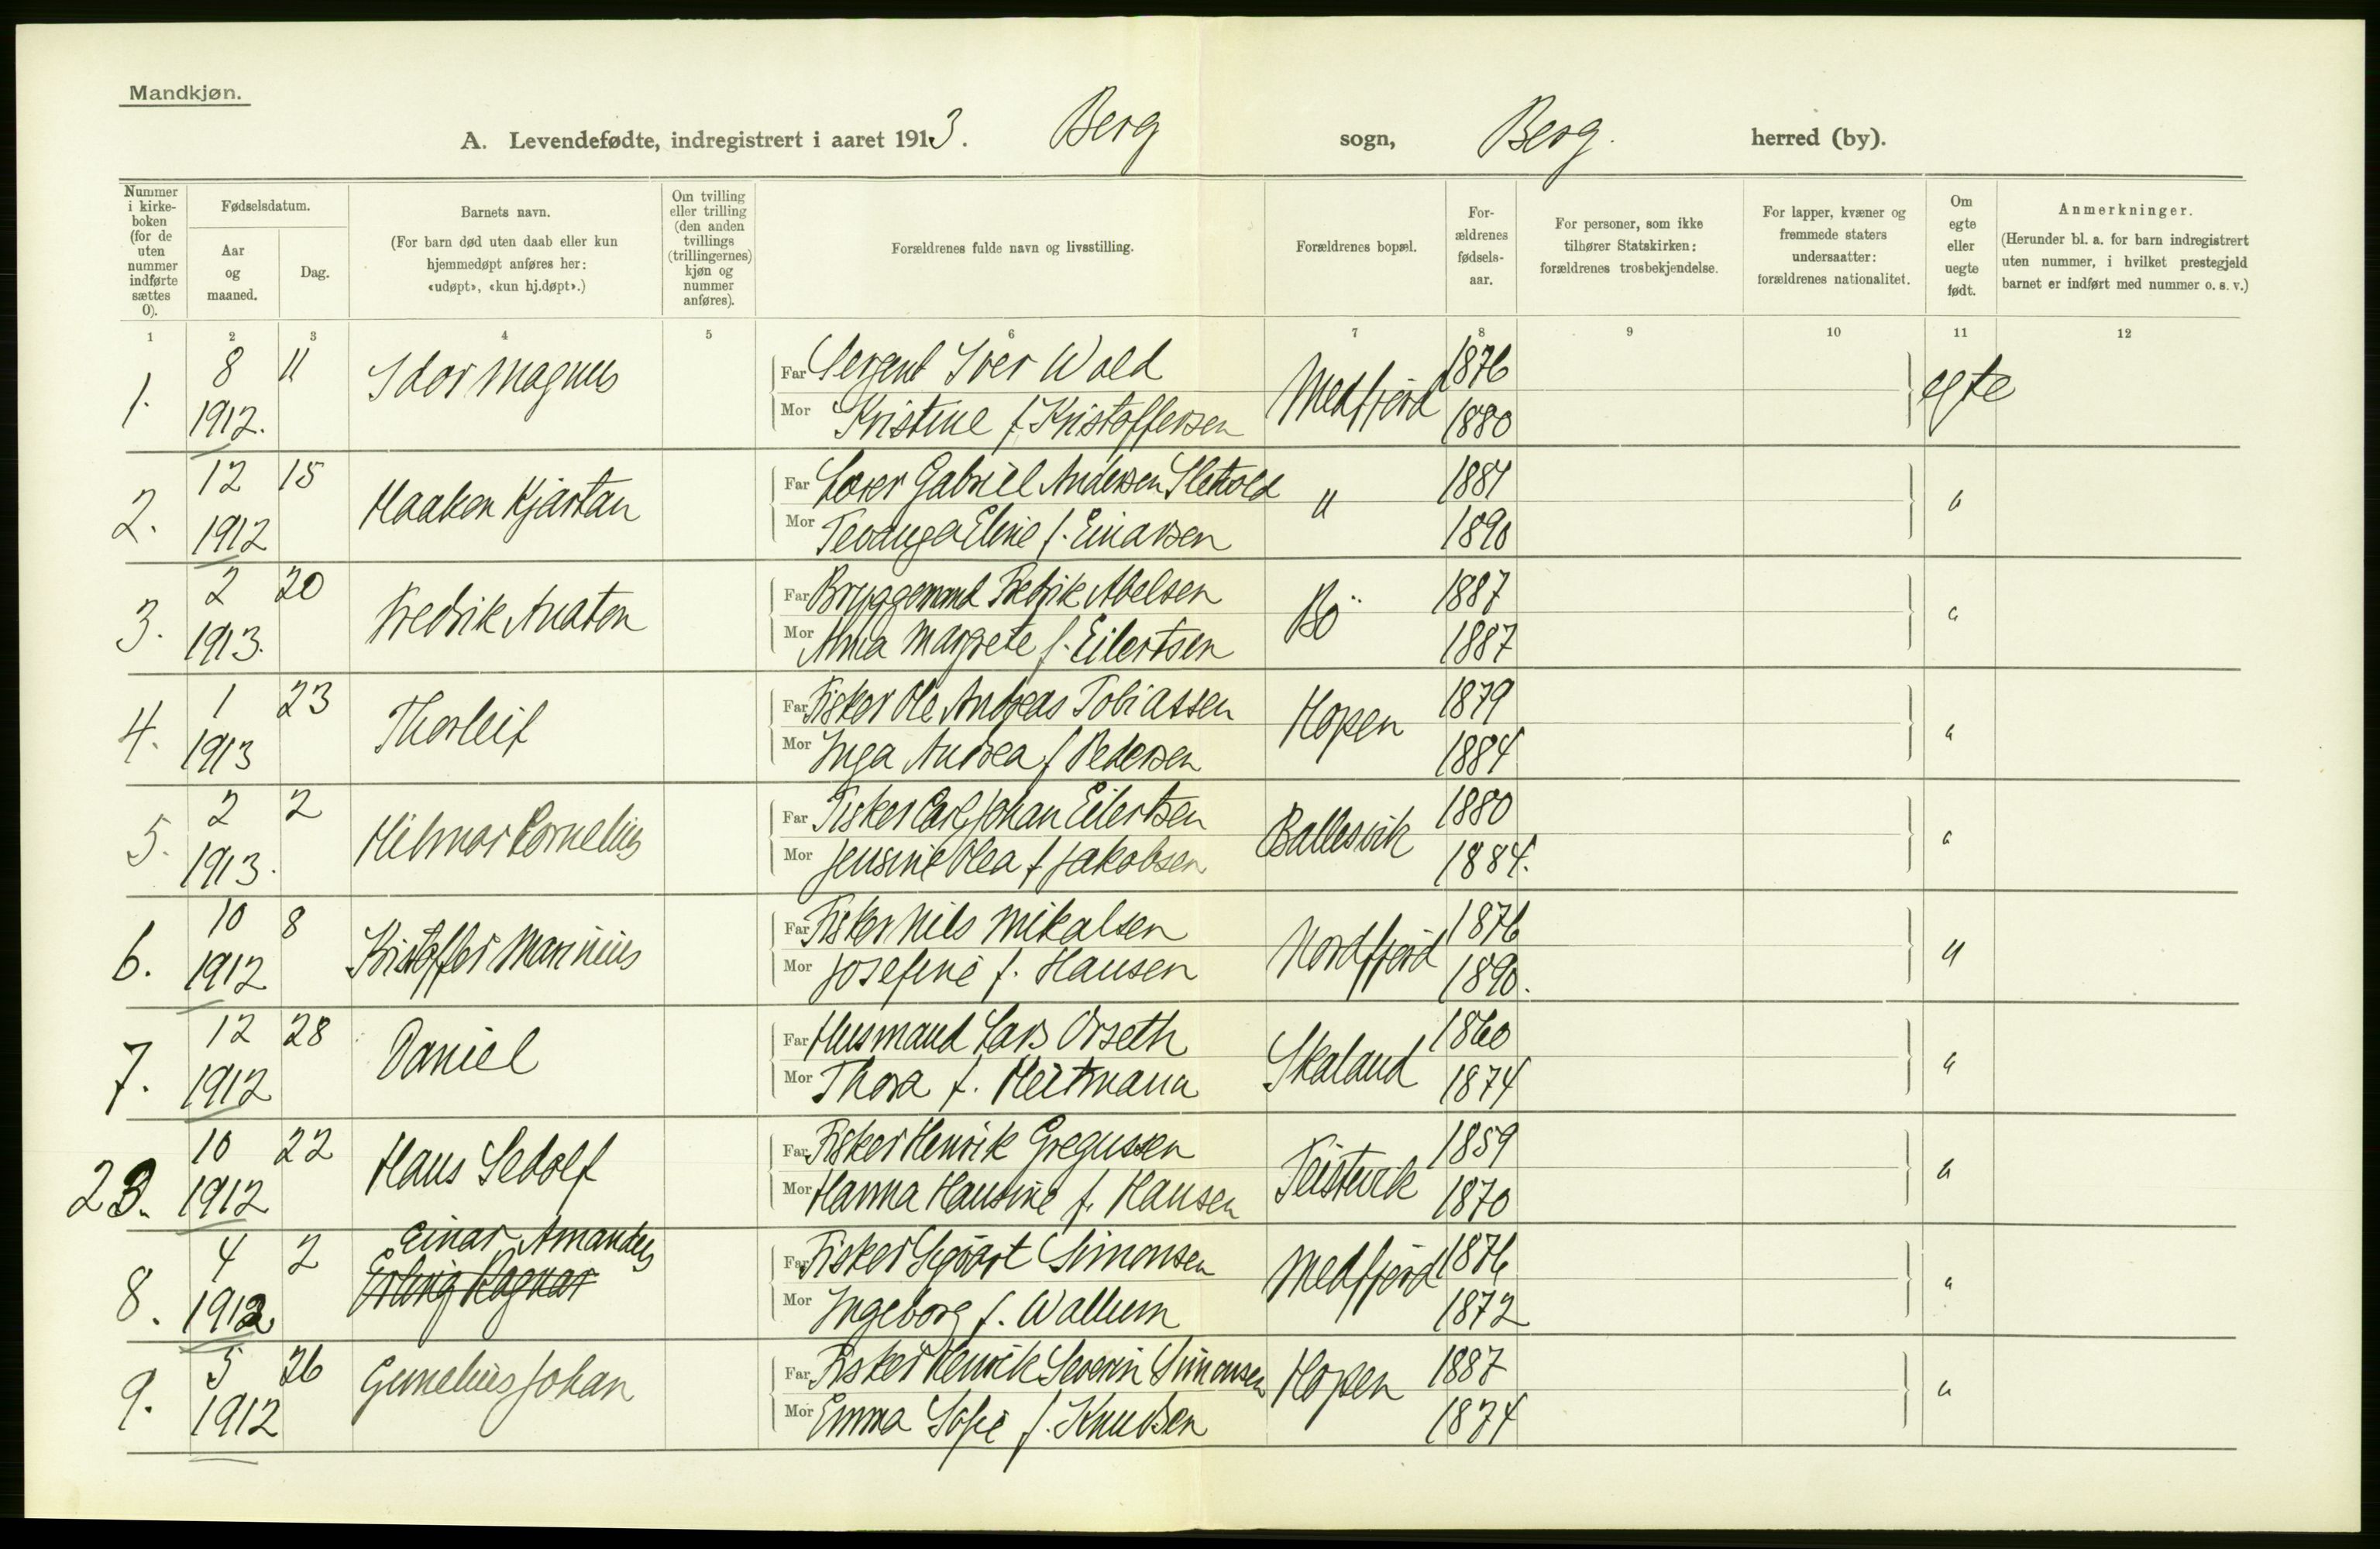 Mandkjøn.
A. Levendefødte, indregistrert i aaret 1913. Berg sogn, Berg. herred (by).
Nummer i kirke-boken (for de uten nummer indførte sættes 0).
Fødselsdatum.
Aar og maaned.
Dag.
Barnets navn.
(For barn død uten daab eller kun hjemmedøpt anføres her: «udøpt», «kun hj.døpt».)
Om tvilling eller trilling (den anden tvillings (trillingernes) kjøn og nummer anføres).
Forældrenes fulde navn og livsstilling.
Forældrenes bopæl.
For-ældrenes fødsels-aar.
For personer, som ikke tilhører Statskirken: forældrenes trosbekjendelse.
For lapper, kvæner og fremmede staters undersaatter: forældrenes nationalitet.
Om egte eller uegte født.
Anmerkninger.
(Herunder bl. a. for barn indregistrert uten nummer, i hvilket prestegjeld barnet er indført med nummer o. s. v.)
1 2 3 4 5 6 7 8 9 10 11 12
1. 8 11 Idor Magnus Far Sergent Iver Wold Medfjord 1876 egte
1912. Mor Kristine f Kristoffersen 1880
2. 12 15 Haakon Kjartan Far Lærer Gabriel Andersen Sletvold " 1884 "
1912 Mor Eline f. Einarsen 1890
3. 2 20 Fredrik Anaton Far Bryggemand Fredrik Abelsen Bö 1887 "
1913. Mor Anna Margrete f. Eilertsen 1887
4. 1 23 Thorleif Far Fisker Ole Andreas Tobiassen Hopen 1879 "
1913 Mor Inga Andrea f Pedersen 1884
5. 2 2 Hilmar Cornelius Far Fisker Carl Johan Eilertsen Ballesvik 1880 "
1913. Mor Jensine Olea f Jakobsen 1884.
6. 10 8 Kristoffer Marinius Far Fisker Nils Mikalsen Nordfjord 1876 "
1912 Mor Josefine f. Hansen 1890.
7. 12 28 Daniel Far Husmand Lars Orseth Skaland 1860 "
1912 Mor Thora f. Heitmann 1874
23. 10 22 Hans Sedolf Far Fisker Henrik Gregussen Teistevik 1859 "
1912 Mor Hanna Hansine f. Hansen 1870
Einar Amandus
8. 4 2 Erling Ragnar Far Fisker Sigvart Simonsen Medfjord 1876 "
1912 Mor Ingeborg f. Wallum 1872
9. 5 26 Gunelius Johan Far Fisker Henrik Severin Simonsen Hopen 1887 "
1912 Mor Emma Sofie f. Knudsen 1874